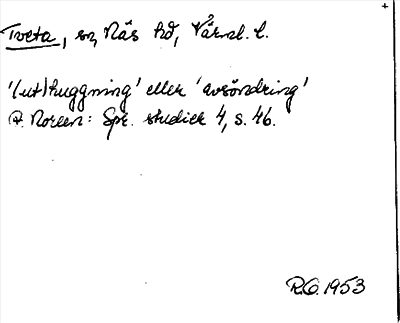 Tveta, sn, Näs hd, Värml. l.
'(ut)huggning' eller 'avsöndring'
A. Noreen: Spr. studier 4, s. 46.
R.O. 1953